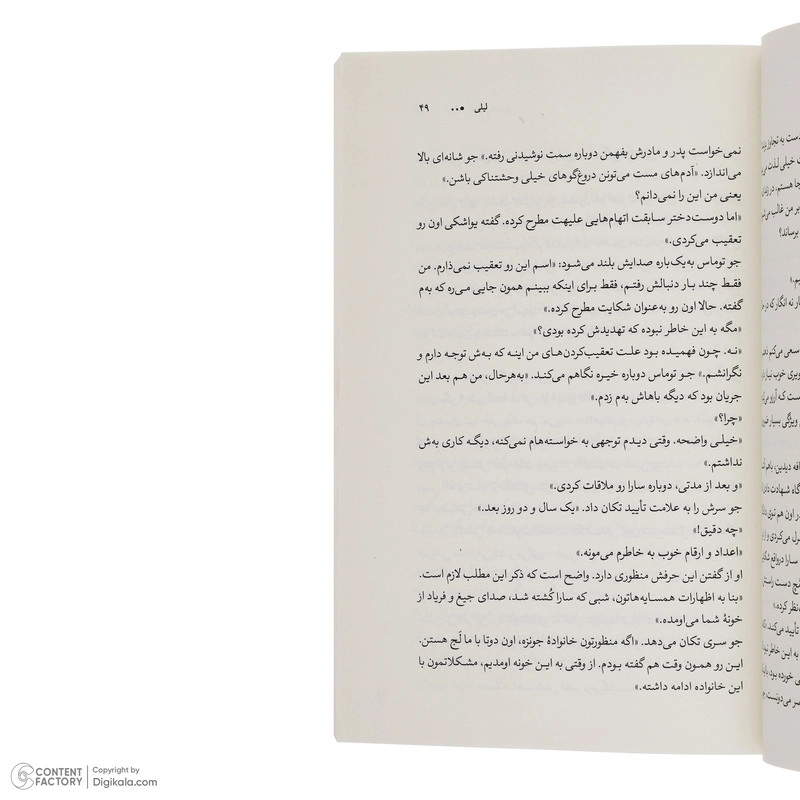 لیلی ●●● ۴۹
نمی‌خواست پدر و مادرش بفهمن دوباره سمت نوشیدنی رفته.» جو شانه‌ای بالا
می‌اندازد. «آدم‌های مست می‌تونن دروغ‌گوهای خیلی وحشتناکی باشن.»
یعنی من این را نمی‌دانم؟
«اما دوست‌دختر سابقت اتهام‌هایی علیهت مطرح کرده. گفته یواشکی اون رو
تعقیب می‌کردی.»
جو توماس به‌یک‌باره صدایش بلند می‌شود: «اسم این رو تعقیب نمی‌ذارم. من
فقط چند بار دنبالش رفتم، فقط برای اینکه ببینم همون جایی می‌ره که به‌م
گفته. حالا اون رو به‌عنوان شکایت مطرح کرده.»
«مگه به این خاطر نبوده که تهدیدش کرده بودی؟»
«نه. چون فهمیده بود علت تعقیب‌کردن‌های من اینه که به‌ش توجه دارم و
نگرانشم.» جو توماس دوباره خیره نگاهم می‌کند. «به‌هرحال، من هم بعد این
جریان بود که دیگه باهاش به‌م زدم.»
«چرا؟»
«خیلی واضحه. وقتی دیدم توجهی به خواسته‌هام نمی‌کنه، دیگه کاری به‌ش
نداشتم.»
«و بعد از مدتی، دوباره سارا رو ملاقات کردی.»
جو سرش را به علامت تأیید تکان داد. «یک سال و دو روز بعد.»
«چه دقیق!»
«اعداد و ارقام خوب به خاطرم می‌مونه.»
او از گفتن این حرفش منظوری دارد. واضح است که ذکر این مطلب لازم است.
«بنا به اظهارات همسایه‌هاتون، شبی که سارا کُشته شد، صدای جیغ و فریاد از
خونهٔ شما می‌اومده.»
جو سری تکان می‌دهد. «اگه منظورتون خانوادهٔ جونزه، اون دوتا با ما لَج هستن.
این رو همون وقت هم گفته بودم. از وقتی به این خونه اومدیم، مشکلاتمون با
این خانواده ادامه داشته.»
CONTENT FACTORY
Copyright by
Digikala.com